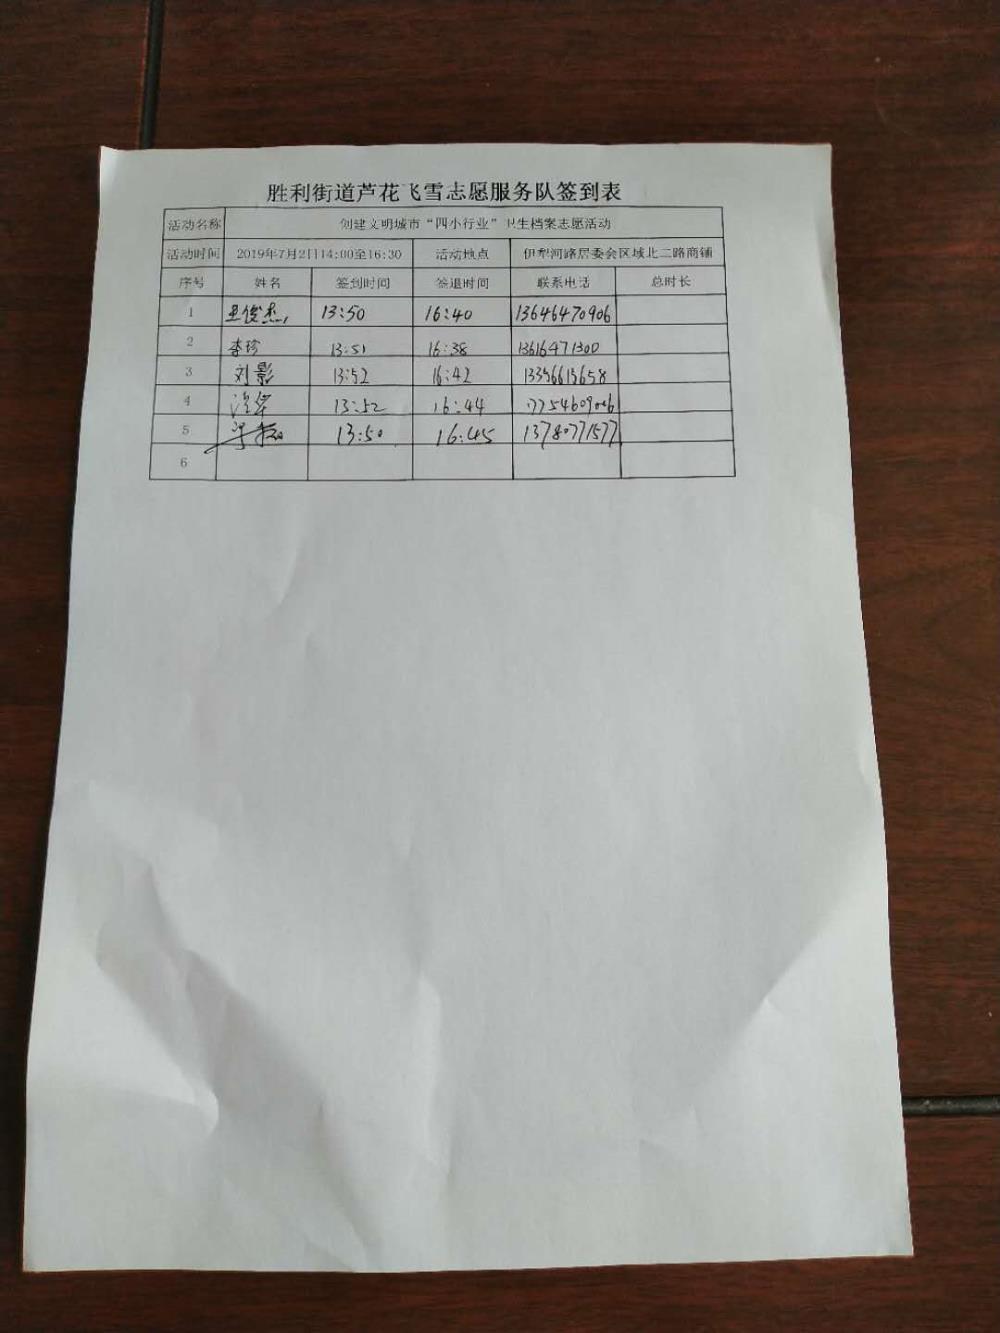 胜利街道芦花飞雪志愿服务队签到表
活动名称 创建文明城市“四小行业”卫生档案志愿活动
活动时间 2019年7月2日14:00至16:30 活动地点 伊犁河路居委会区域北二路商铺
序号 姓名 签到时间 签退时间 联系电话 总时长
1 王俊杰 13:50 16:40 13646470906
2 李珍 13:51 16:38 13616471300
3 刘影 13:52 16:42 13356615658
4 13:52 16:44 17754609006
5 13:50 16:45 13780771577
6